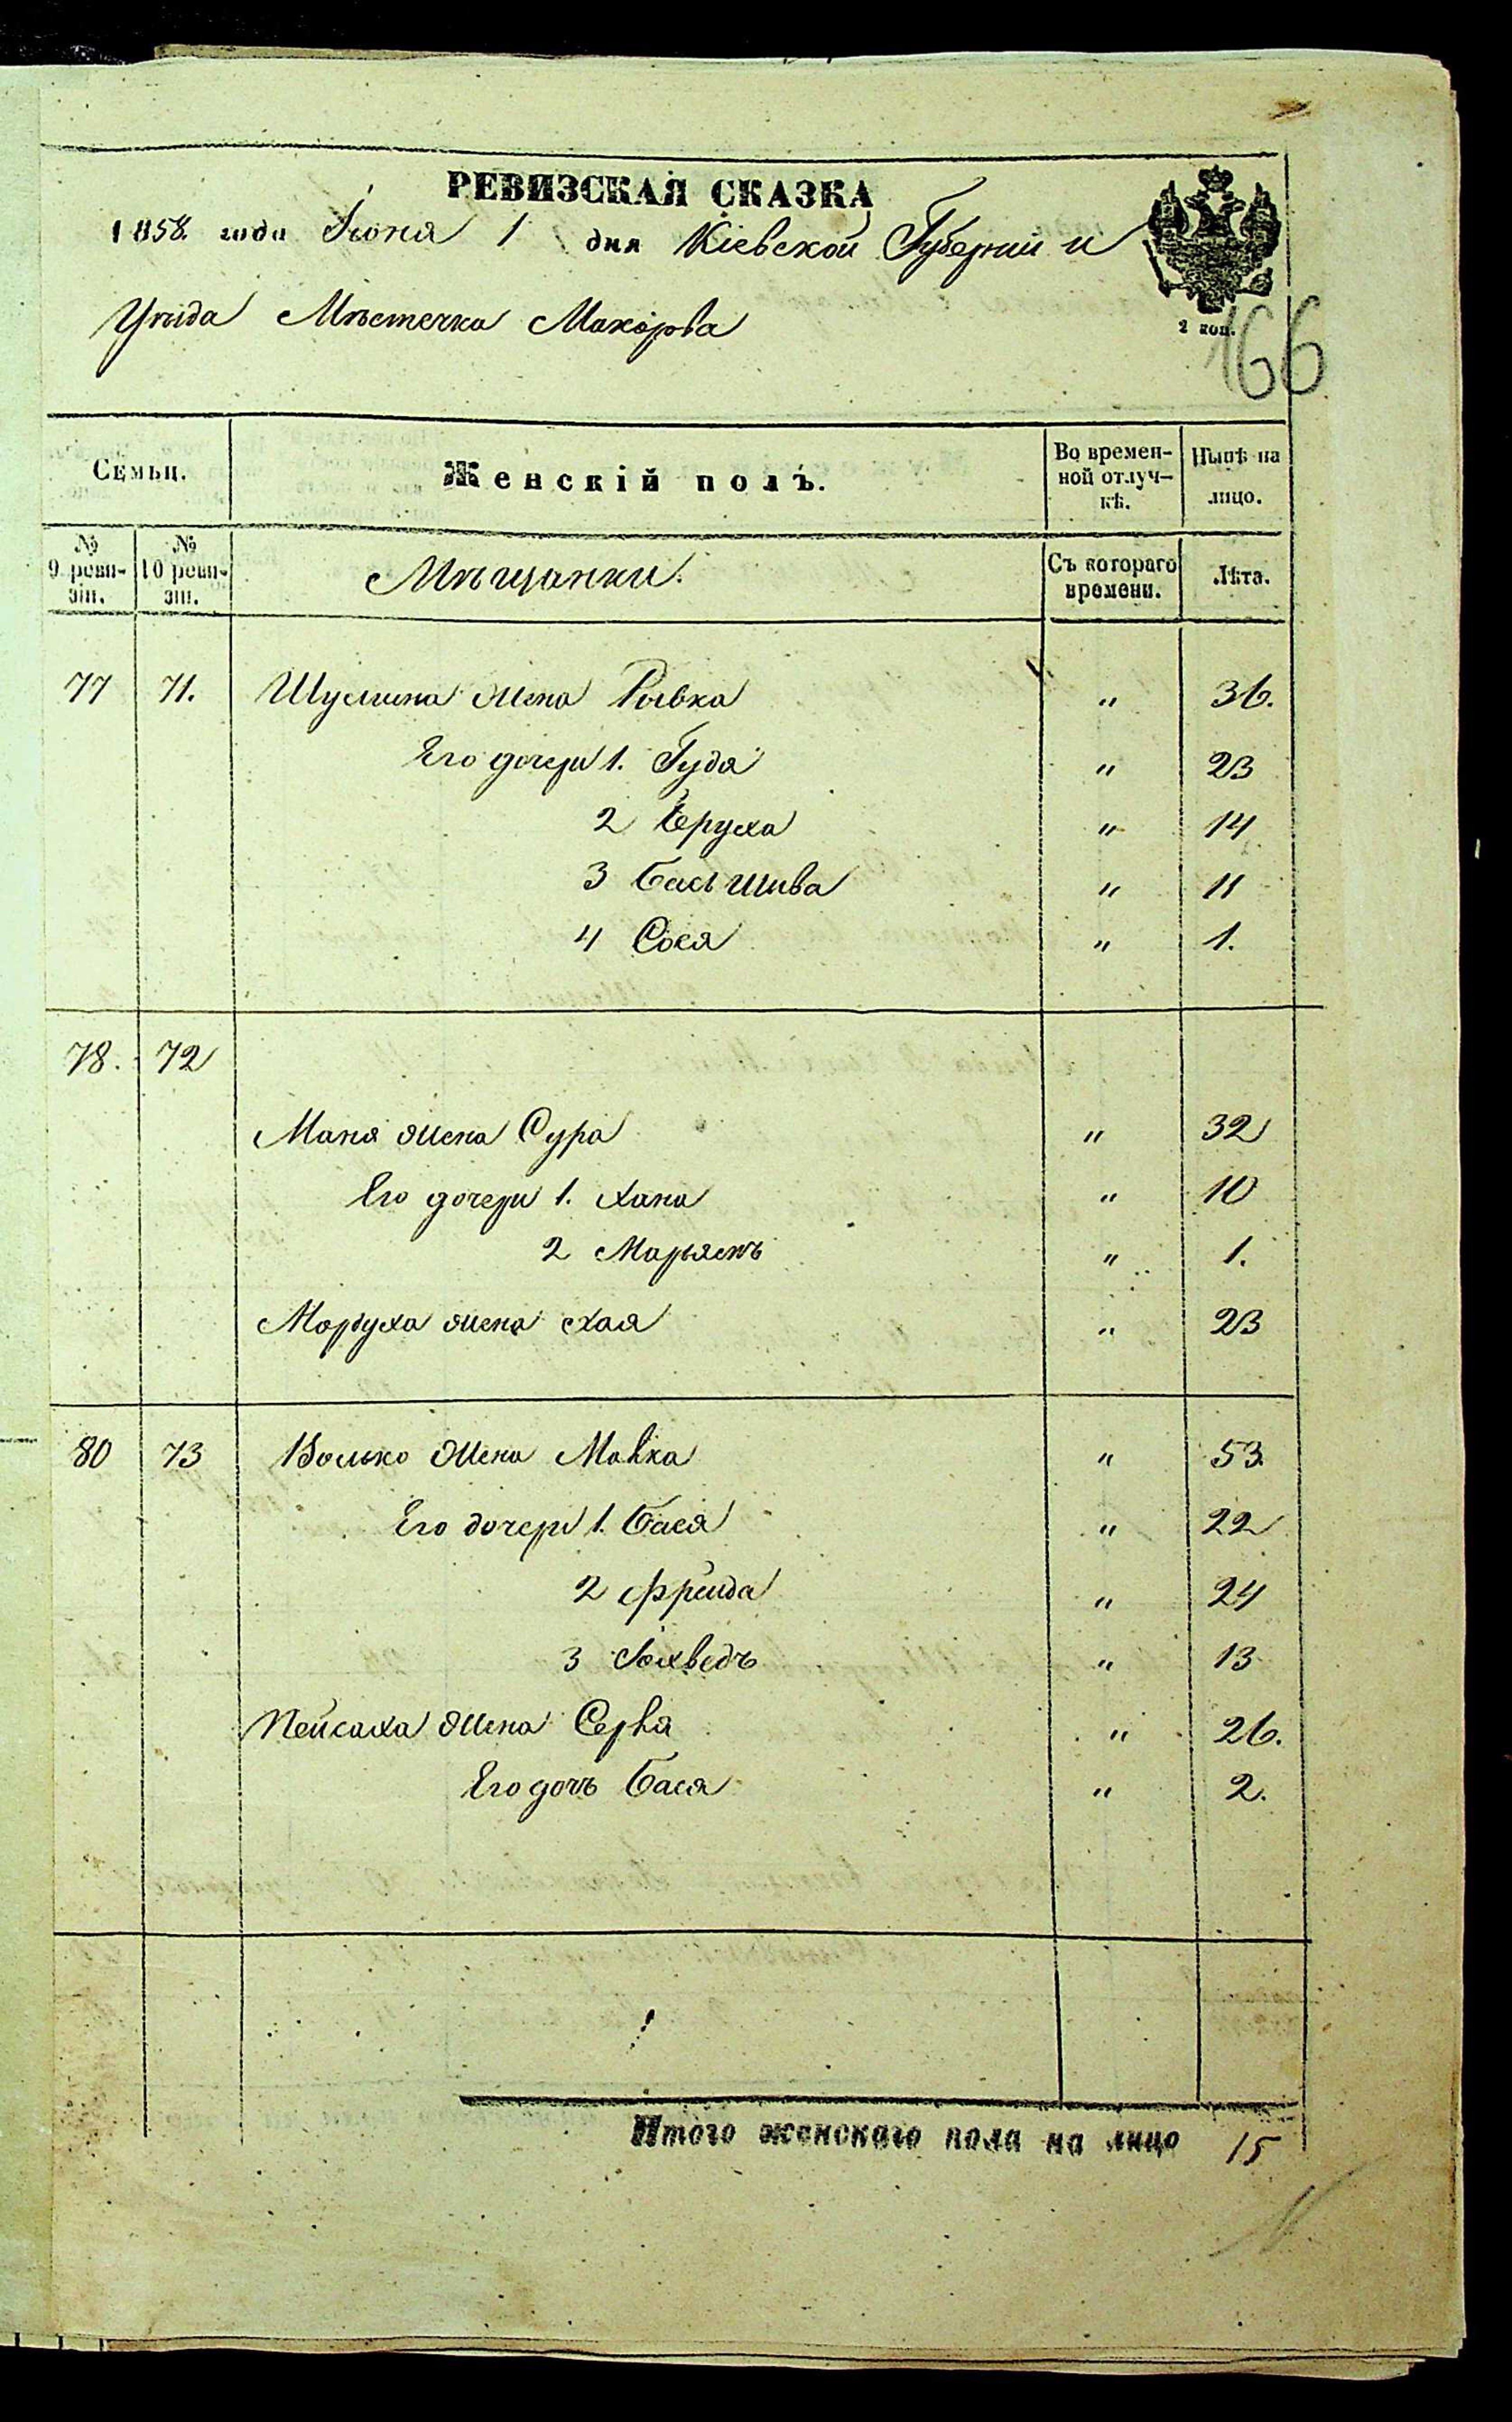 РЕВИЗСКАЯ СКАЗКА
1858. года Іюня 1 дня Кіевской Губерніи и
Уѣзда Мѣстечка Макарова
2 коп.
166
Семьи. Женскій полъ. Во времен- Нынѣ на
ной отлуч- лицо.
кѣ.
№ № Мѣщанки. Съ котораго Лѣта.
9 реви- 10 реви- времени.
зіи. зіи.
77 71. Шулима жена Рывка " 36.
Его дочери 1. Гуда " 23
2 Чруха " 14
3 Басшива " 11
4 Сося " 1.
78. 72
Маня жена Сура " 32
Его дочери 1. Хана " 10
2 Марьямъ " 1.
Мордуха жена Хая " 23
80 73 Волько жена Малка " 53
Его дочери 1. Бася " 22
2 Фрейда " 24
3 Іохведъ " 13
Пейсаха жена Серля " 26.
Его дочь Бася " 2.
Итого женскаго пола на лицо 15